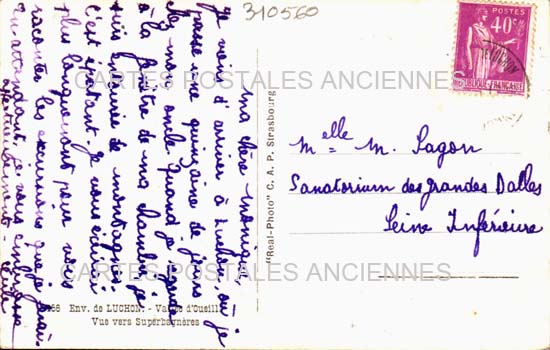 310560
POSTES
40c
RÉPUBLIQUE FRANÇAISE
LUCHON
CARTES POSTALES ANCIENNES
CARTES POSTALES ANCIENNES
Ma chère Monique,
Je viens d'arriver à Luchon où je
passe une quinzaine de jours
chez mon oncle. Quand je regarde
à la fenêtre de ma chambre je
suis entourée de montagnes
c'est épatant. Je vous écrirai
plus longuement pour vous
raconter les excursions que je ferai.
En attendant, je vous embrasse
affectueusement.
"Real-Photo" C. A. P. Strasbourg
Melle M. Sagon
Sanatorium des Grandes Dalles
Seine Inférieure
68 Env. de LUCHON. - Vallée d'Oueil
Vue vers Superbagnères